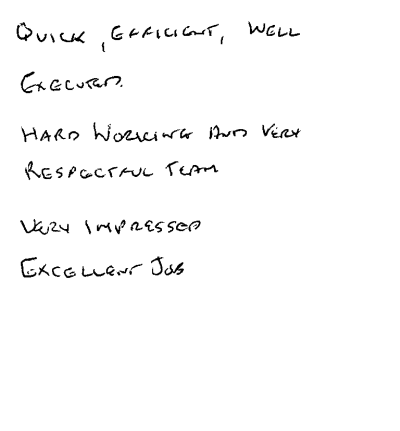 QUICK, EFFICIENT, WELL
EXECUTED.
HARD WORKING AND VERY
RESPECTFUL TEAM
VERY IMPRESSED
EXCELLENT JOB